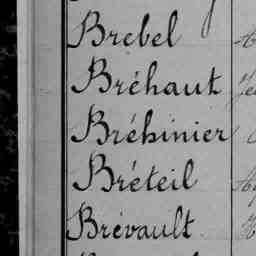 Brebel
Bréhaut
Bréhinier
Bréteil
Brévault